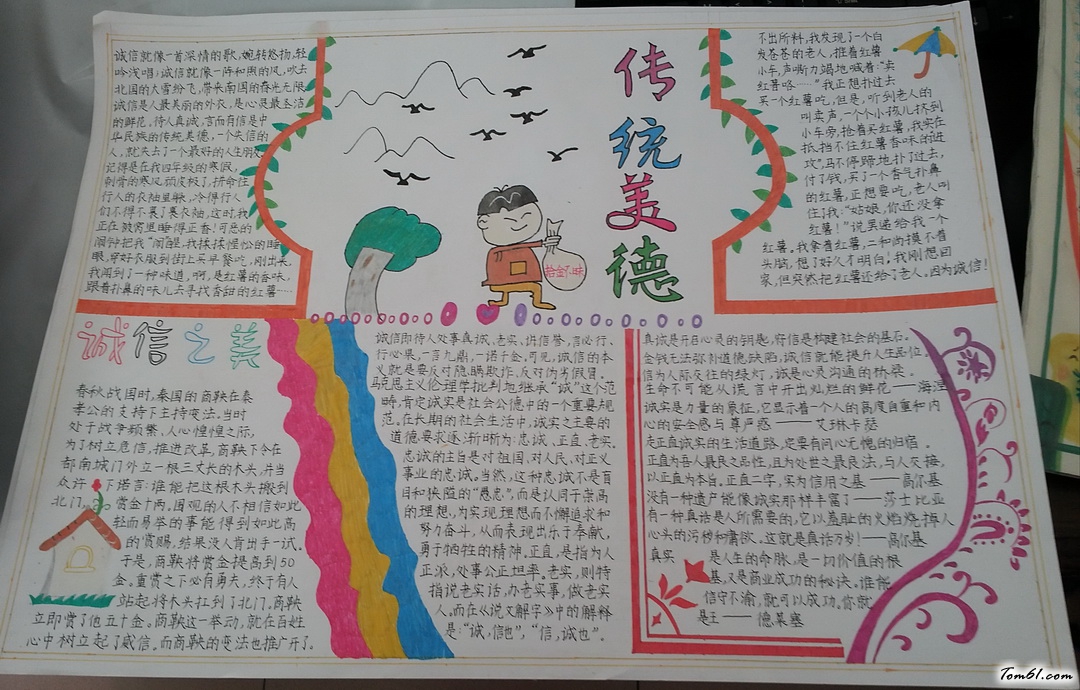 诚信就像一首深情的歌,婉转悠扬,轻
吟浅唱;诚信就像一阵和煦的风,吹去
北国的大雪纷飞,带来南国的春光无限
诚信是人最美丽的外衣,是心灵最圣洁
的鲜花。待人真诚,言而有信是中
华民族的传统美德,一个失信的
人,就失去了一个最好的人生朋友
记得是在我四年级的寒假,
刺骨的寒风顽皮极了,拼命往
行人的衣袖里躲,冷得行人
们不得不裹了裹衣袖,这时,我
正在被窝里睡得正香!可恶的
闹钟把我“闹醒,我揉揉惺忪的睡
眼,穿好衣服到街上买早餐吃,刚出来,
我闻到了一种味道,啊,是红薯的香味,
跟着扑鼻的味儿去寻找香甜的红薯……
传统美德
拾金不昧
不出所料,我发现了一个白
发苍苍的老人,推着红薯
小车,声嘶力竭地喊着:“卖
红薯咯……”我正想扑过去
买一个红薯吃,但是,听到老人的
叫卖声,一个个小孩儿扶到
小车旁,抢着买红薯,我实在
抵挡不住红薯香味的进
攻”,马不停蹄地扑了过去,
付了钱,买了一个香气扑鼻
的红薯,正想要吃,老人叫
住了我:“姑娘,你还没拿
红薯!”说罢递给我一个
红薯。我拿着红薯,二和尚摸不着
头脑,想了好久才明白!我刚想回
家,但突然把红薯还给了老人。因为诚信!
诚信之美
春秋战国时,秦国的商鞅在秦
孝公的支持下主持变法。当时
处于战争频繁、人心惶惶之际,
为了树立危信,推进改革,商鞅下令在
都南城门外立一根三丈长的木头,并当
众许下诺言:谁能把这根木头搬到
北门,赏金十两,围观的人不相信如此
轻而易举的事能得到如此高
的赏赐,结果没人肯出手一试。
于是,商鞅将赏金提高到50
金。重赏之下必有勇夫,终于有人
站起将木头扛到了北门,商鞅
立即赏了他五十金。商鞅这一举动,就在百姓
心中树立起了威信。而商鞅的变法也推广开了。
诚信即待人处事真诚、老实、讲信誉,言必行、
行必果,一言九鼎,一诺千金。可见,诚信的本
义就是要反对隐瞒欺诈、反对伪劣假冒。
马克思主义伦理学批判地继承“诚”这个范
畴,肯定诚实是社会公德中的一个重要规
范。在长期的社会生活中,诚实之主要的
道德要求逐渐晰为:忠诚、正直、老实。
忠诚的主旨是对祖国、对人民、对正义
事业的忠诚。当然,这种忠诚不是盲
目和狭隘的“愚忠”,而是认同于崇高
的理想,为实现理想而不懈追求和
努力奋斗,从而表现出乐于奉献,
勇于牺牲的精神。正直,是指为人
正派,处事公正坦率。老实,则特
指说老实话,办老实事,做老实
人。而在《说文解字》中的解释
是:“诚,信也”,“信,诚也”。
真诚是开启心灵的钥匙,将信是构建社会的基石。
金钱无法弥补道德缺陷,诚信就能提升人生品位。
信为人际交往的绿灯,诚是心灵沟通的桥梁。
生命不可能从谎言中开出灿烂的鲜花——海涅
诚实是力量的象征,它显示着一个人的高度自重和内
心的安全感与尊严感———艾琳·卡瑟
走正直诚实的生活道路,定要有问心无愧的归宿。
正直为吾人最良之品性,且为处世之最良法,与人交接,
以正直为本旨。正直二字,实为信用之基——高尔基
没有一种遗产能像诚实那样丰富了——莎士比亚
有一种真话是人所需要的,它以羞耻的火焰烧掉人
心头的污秽和庸欲。这就是真话万岁!——高尔基
真实是人生的命脉,是一切价值的根
基,又是商业成功的秘诀。谁能
信守不渝,就可以成功。你就
是王——德莱塞
Tom61.com